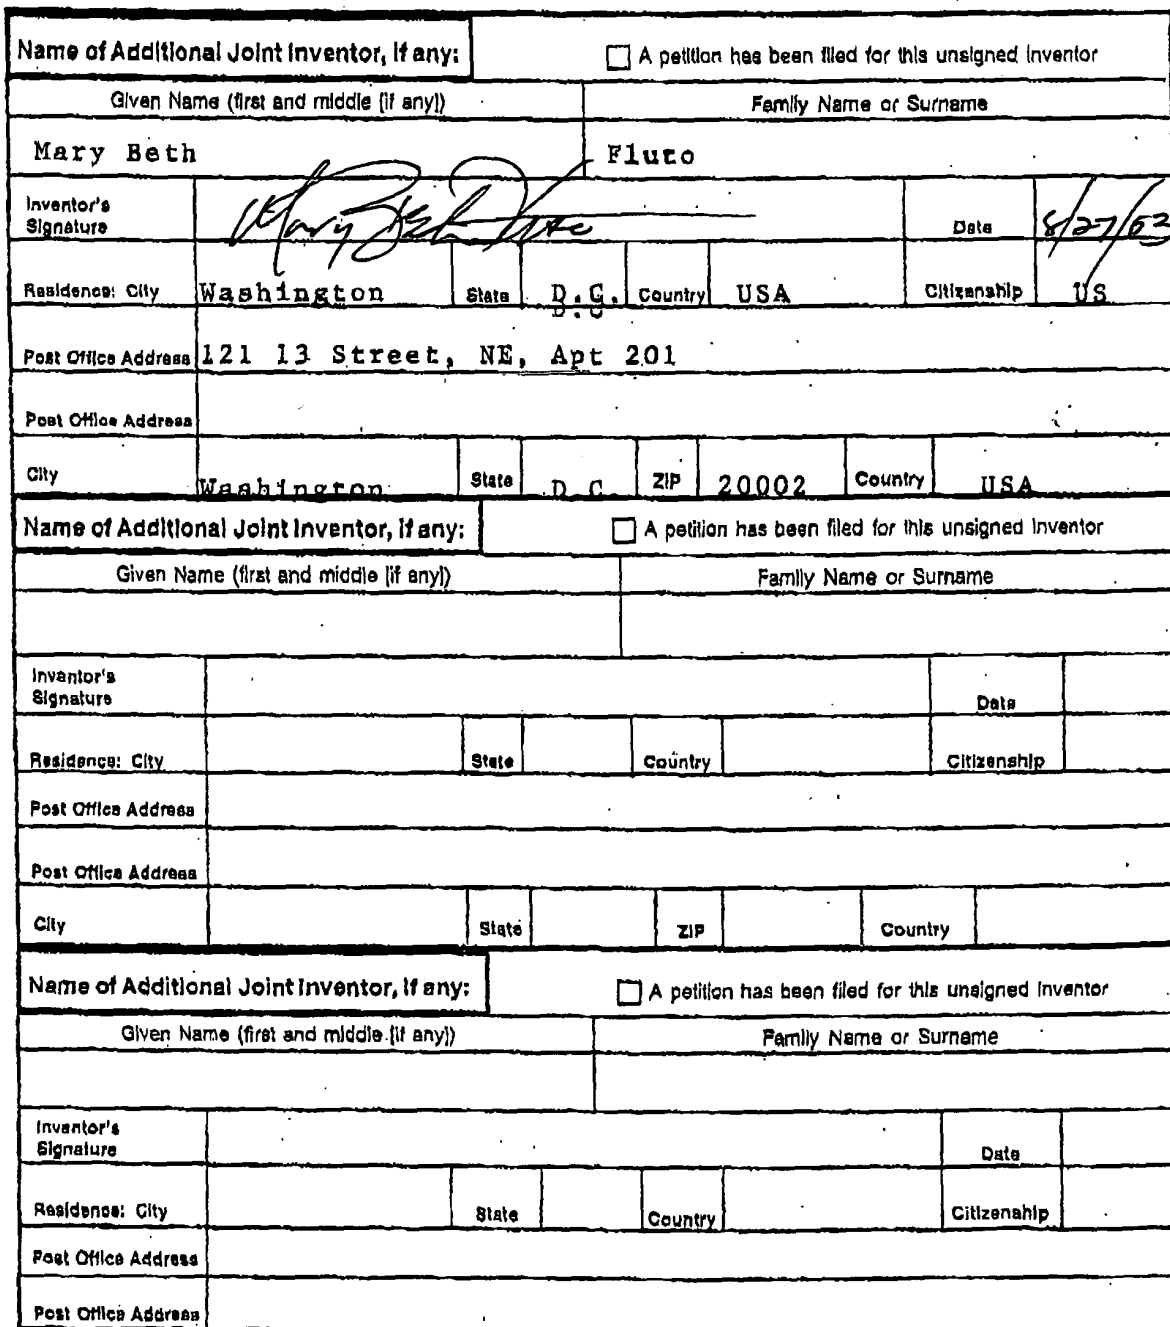 Name of Additional Joint Inventor, if any: A petition has been filed for this unsigned inventor
Given Name (first and middle [if any]) Family Name or Surname
Mary Beth Fluto
Inventor's Signature Mary Beth Date 8/27/03
Residence: City Washington State D.C. Country USA Citizenship US
Post Office Address 121 13 Street, NE, Apt 201
Post Office Address
City Washington State D.C. ZIP 20002 Country USA
Name of Additional Joint Inventor, if any: A petition has been filed for this unsigned inventor
Given Name (first and middle [if any]) Family Name or Surname
Inventor's Signature Date
Residence: City State Country Citizenship
Post Office Address
Post Office Address
City State ZIP Country
Name of Additional Joint Inventor, if any: A petition has been filed for this unsigned inventor
Given Name (first and middle [if any]) Family Name or Surname
Inventor's Signature Date
Residence: City State Country Citizenship
Post Office Address
Post Office Address